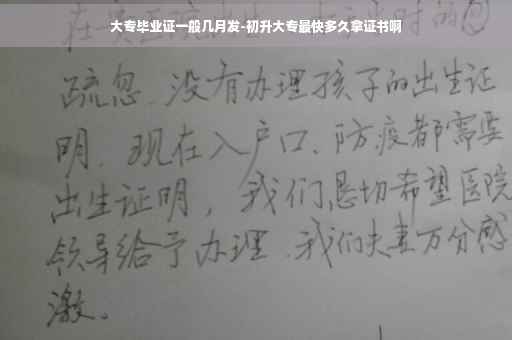 大专毕业证一般几月发-初升大专最快多久拿证书啊
时的
疏忽、没有办理孩子的出生证
明、现在入户口、防疫都需要
出生证明，我们恳切希望医院
领导给予办理、我们夫妻万分感
激。